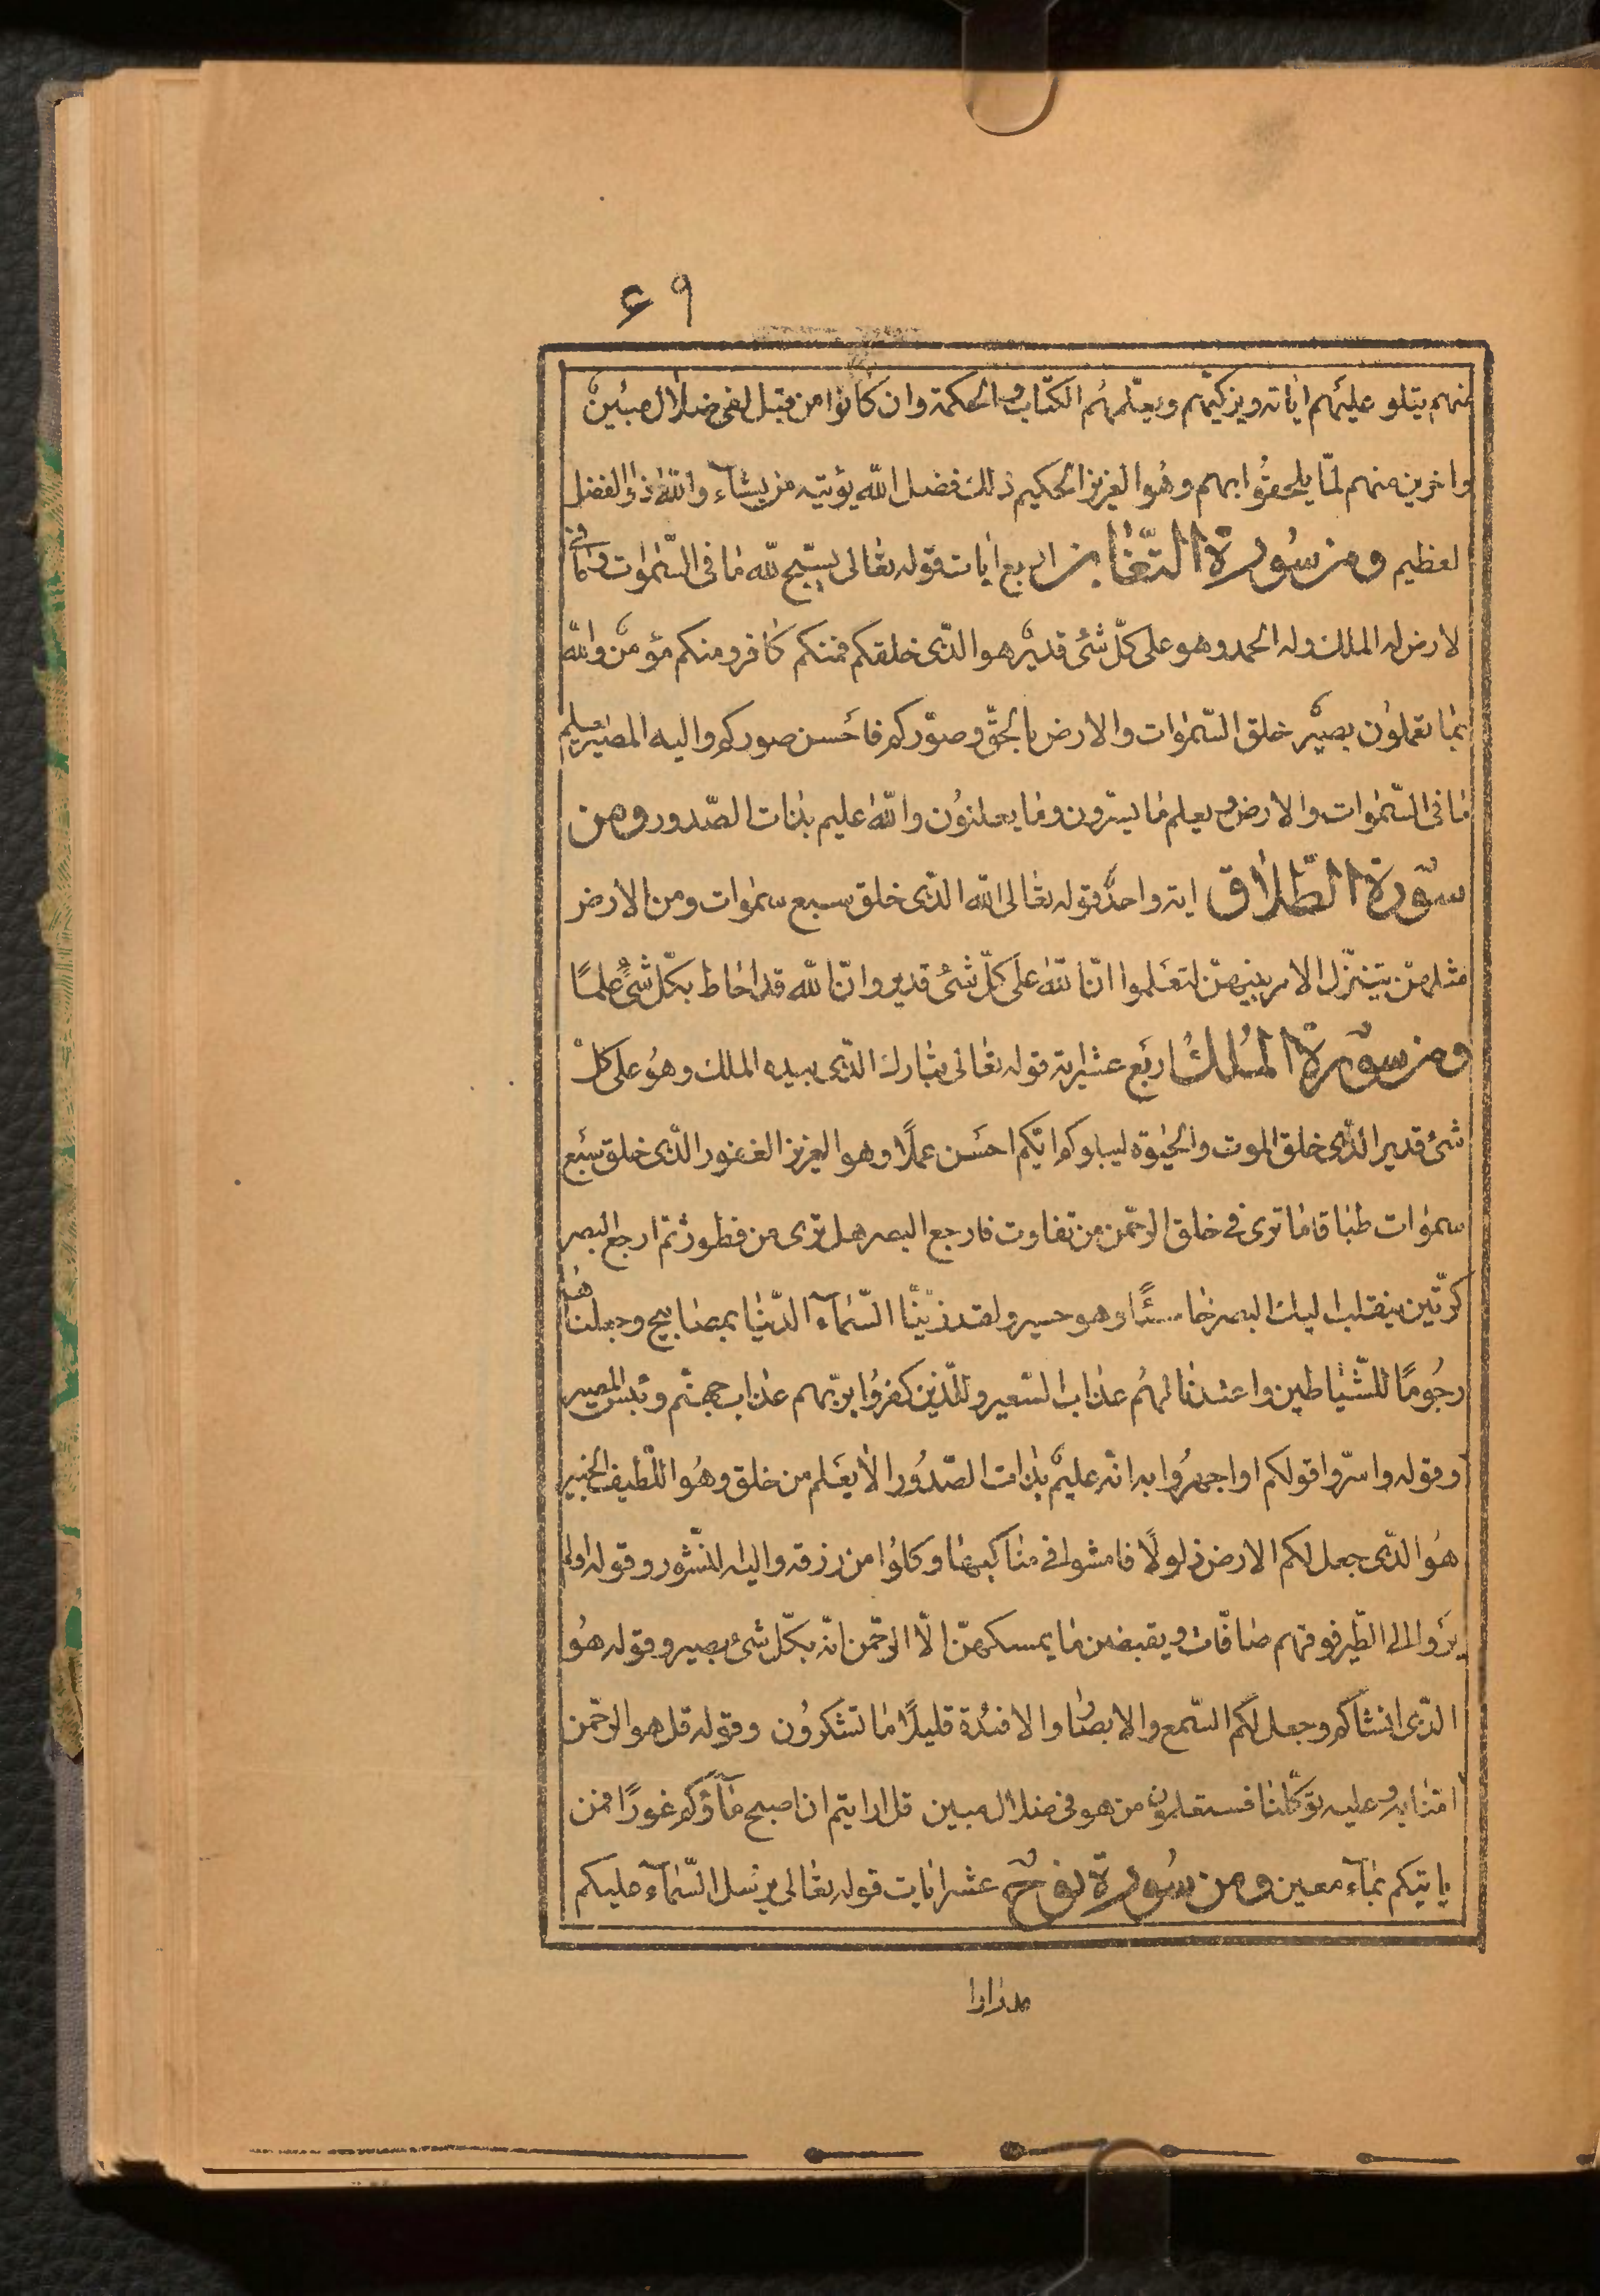 ۶۹
منهم يتلو عليهم اياته ويزكيهم ويعلّمهُم الكتاب والحكمة وان كانوا من قبل لفى ضلال مبين
واخرين منهم لمّا يلحقُوا بهم وهُوالعزيز الحكيم ذلك فضل اللّه يؤتيه من يشآء واللّه ذوالفضل
لعظيم ومن سُورة التّغابن اربع ايات قوله تعالى يسبّح للّه ما فى السّموات وما فى
لارض له الملك وله الحمد وهو على كلّ شئ قدير هوالّذى خلقكم فمنكم كافر ومنكم مؤمن واللّه
بما تعملون بصير خلق السّموات والارض بالحقّ وصوّركم فاَحسن صوركم واليه المصير يعلم
ما فى السّموات والارض ويعلم ما يسرّون وما يعلنوُن واللّه عليم بذات الصّدور ومن
سوّرة الطّلاق اية واحدة قوله تعالى اللّه الّذى خلق سبع سموات ومن الارض
مثلهنّ يتنزّل الامر بينهنّ لتعَلموا انّ اللّه على كلّ شئ قدير وانّ اللّه قد احاط بكلّ شئ علمًا
ومن سوّرة المُلك اربَع عشراية قوله تعالى تبارك الّذى بيده الملك وهُو على كل
شئ قدير الّذى خلق الموت والحيٰوة ليبلوكم ايّكم احسَن عملًا وهو العزيز الغفور الّذى خلق سبَع
سموات طباقا ما ترى فى خلق الرحمّن من تفاوت فارجع البصر هل ترى من فطور ثمّ ارجع البصر
كرّتين ينقلب اليك البصر خاسئًا وهو حسير ولقد زينّا السّمآء الدّنيا بمصابيح وجعلناها
رجُومًا للشّياطين واعتدنا لهمُ عذاب السّعير وللّذين كفروُا بربّهم عذاب جهنّم وبئس المصير
وقوله واسرّوا قولكم اواجهروُا به انّه عليم بذات الصّدوُر الا يعَلم من خلق وهُو اللّطيف الخبير
هُوالّذى جعل لكم الارض ذلولًا فامشوا فى مناكبها وكلوُا من رزقه واليه النّشور وقوله اولم
يرَوا الى الطّير فوقهم صافّات ويقبضن ما يمسكهنّ الّا الرحمّن انّه بكلّ شئ بصير وقوله هُو
الّذى انشاكم وجعل لكم السّمع والابصار والافئدة قليلًا ما تشكروُن وقوله قل هوالرحمّن
امنّا به وعليه توكّلنا فستعلمون من هو فى ضلال مبين قل ارايتم ان اصبح مآؤكم غورًا فمن
ياتيكم بمآء معين ومن سُورة نوح عشر ايات قوله تعالى يرسل السّمآء عليكم
مدرارا